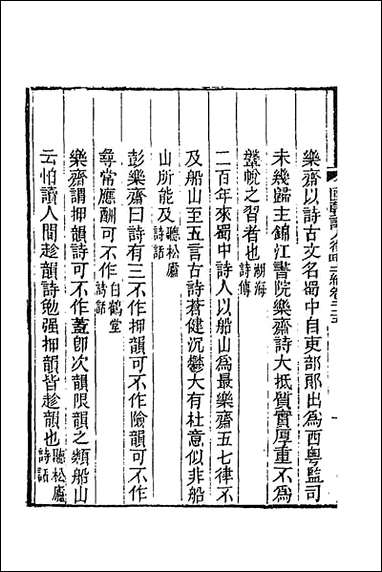 樂齋以詩古文名蜀中自吏部郎出為西粵監司
未幾歸主錦江書院樂齋詩大抵質實厚重不為
鞶帨之習者也湖海詩傳
二百年來蜀中詩人以船山為最樂齋五七律不
及船山至五言古詩蒼健沉鬱大有杜意似非船
山所能及聽松廬詩話
彭樂齋曰詩有三不作押韻可不作險韻可不作
尋常應酬可不作白鶴堂詩話
樂齋謂押韻詩可不作蓋卽次韻限韻之類船山
云怕讀人間趁韻詩勉强押韻皆趁韻也聽松廬詩話